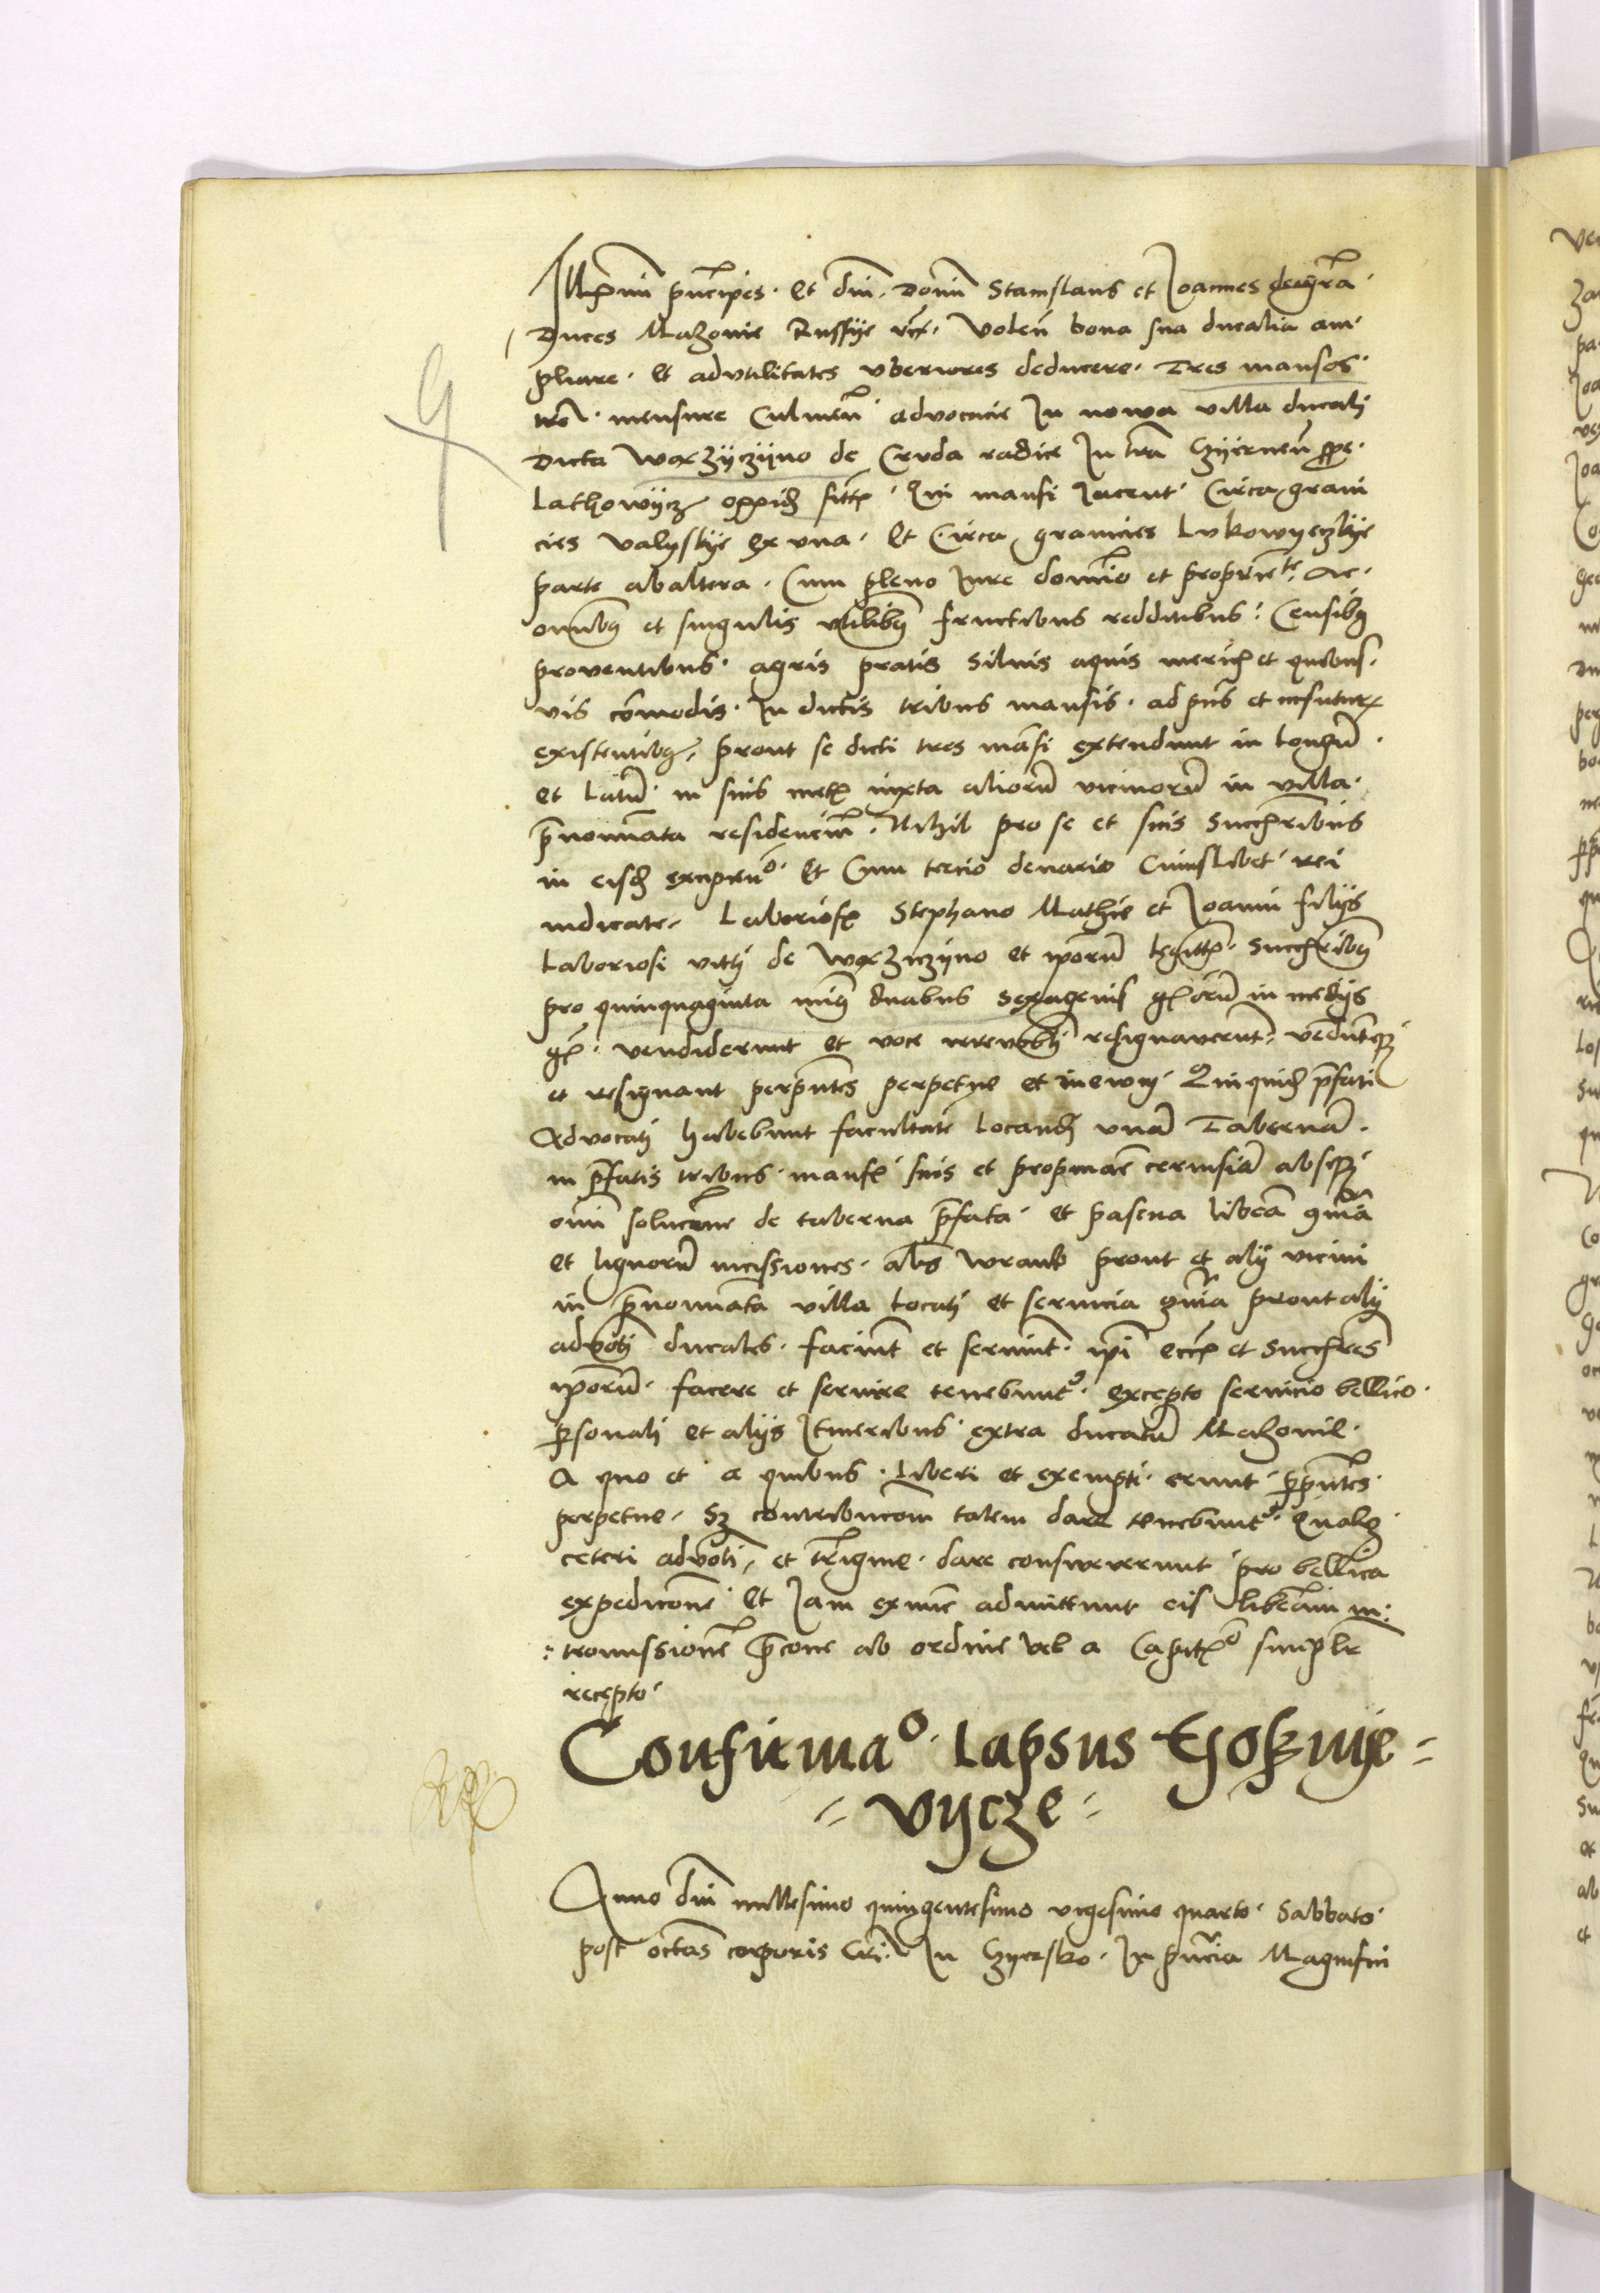 Illmi principes et dni domini Stanislaus et Joannes dei gra
Duces Mazovie Russye etc. Volen bona sua ducalia am
pliare et ad utilitates uberiores deducere. Tres mansos
mensure Culmen advocacie In nowa villa ducali
Dicta de Cruda radice In tra Czyrnen prope
Lathowycz oppid Qui mansi Jacent Circa grani
cies Valyskye ex una Et Circa granicies Lukowyeczkye
parte ab altera. Cum pleno Jure dominio et proprietate Ac
omnibus et singulis utilibus fructibus redditibus Censibus
proventibus agris pratis Silvis aquis mericis et quibus
vis comodis In dictis tribus mansis ad pns et infuturum
existentibus prout se dicti tres mansi extendunt in longum
et Latum in suis metis iuxta aliorum vicinorum in villa
prenominata residencium Nihil pro se et suis Succribus
in eisdem excepto Et Cum tercio denario Cuiuslibet rei
iudicate Laboriosis Stephano Mathie et Joanni filijs
Laboriosi de et ipsorum legittimis succribus
pro quinquaginta duabus sexagenis grorum in medijs
gr. vendiderunt et voce resignaverunt venduntque
et resignant perpntes perpetue et in ewm Quiquidem prefati
Advocati habebunt facultatem Locandi unam Tabernam
in prefatis tribus mansis suis et propinare cervisiam absque
omni solucione de taberna prefata et pascua libera gnra
et lignorum incissiones als wramb prout et alij vicini
in prenominata villa locati et servicia gnra prout alij
advoti ducales faciunt et serviunt ipi et succres
iporum facere et servire tenebuntur excepto servicio bellico
personali et alijs Itineribus extra ducatum Mazovie
A quo et a quibus Liberi et exempti erunt perpntes
perpetue Sz contribucionem talem dare tenebuntur Quales
ceteri advoti et dare consweverunt pro bellica
expedicione Et Jam exnunc admittunt eis liberam in:
:tromissionem precone ab ordine vel a Capito simplr
recepto
Confirmao Lapsus =
=vycze=
Anno dni millesimo quingentesimo vigesimo quarto Sabbato
post octas corporis cri In Czyrsko In pncia Magnifici